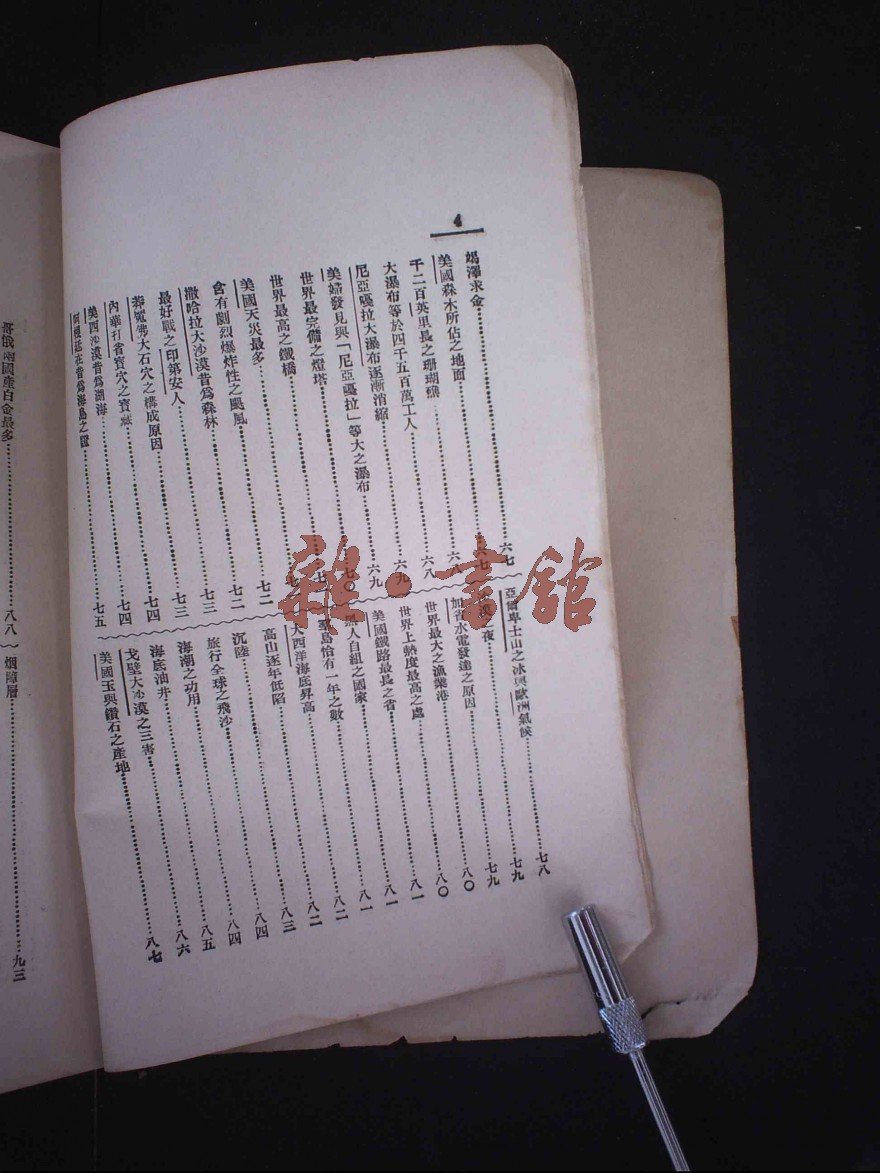 4
竭澤求金 六七
美國森木所佔之地面 六七
千二百英里長之珊瑚礁 六八
大瀑布等於四千五百萬工人 六八
尼亞嘎拉大瀑布逐漸消縮 六九
美婦發見與「尼亞嘎拉」等大之瀑布 六九
世界最完備之燈塔 七〇
世界最高之鐵橋
美國天災最多
含有劇烈爆炸性之颶風 七二
撒哈拉大沙漠昔爲森林 七二
最好戰之印第安人 七三
莽蒐佛大石穴之構成原因 七三
內華打省寶穴之寶藏 七四
美西沙漠昔爲湖海 七四
在昔爲海島之證 七五
亞爾卑士山之冰與歐洲氣候 七八
漠之夜 七九
加省水電發達之原因 七九
世界最大之漁業港 八〇
世界上熱度最高之處 八〇
美國鐵路最長之省 八一
黑人自組之國家 八一
羣島恰有一年之數 八一
大西洋海底昇高 八二
高山逐年低陷 八二
沉陸 八三
旅行全球之飛沙 八四
海潮之功用 八四
海底油井 八五
戈壁大沙漠之三害 八六
美國玉與鑽石之產地 八七
哥俄兩國產白金最多 八八
烟障層 九三
雜·書館